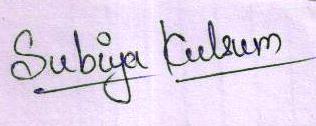 Subiya Kulsum